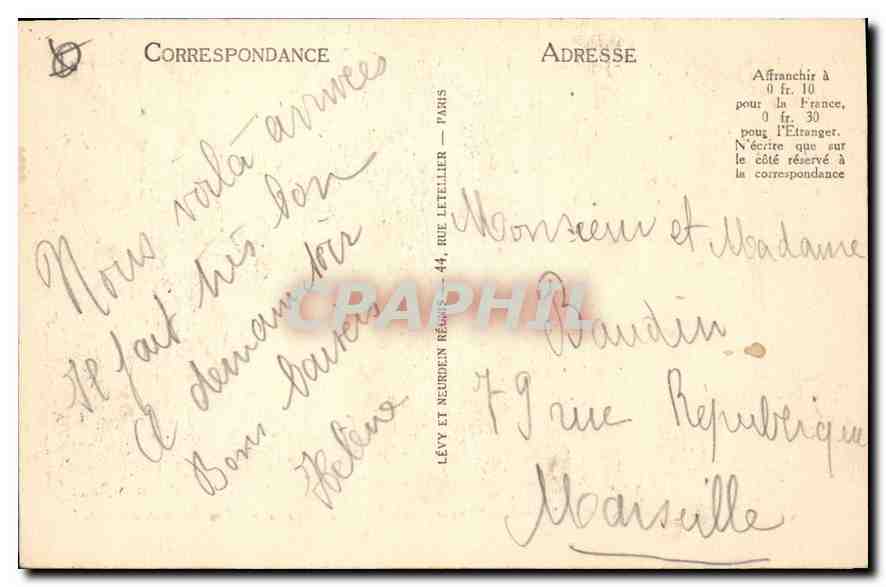 CORRESPONDANCE
Nous voilà arrivées
Il fait très bon
A demain soir
Bons baisers
Hélène
LÉVY ET NEURDEIN RÉUNIS — 44, RUE LETELLIER — PARIS
ADRESSE
Affranchir à
0 fr. 10
pour la France,
0 fr. 30
pour l'Etranger.
N'écrire que sur
le côté réservé à
la correspondance
Monsieur et Madame
Baudin
79 rue République
Marseille
CPAPHIL